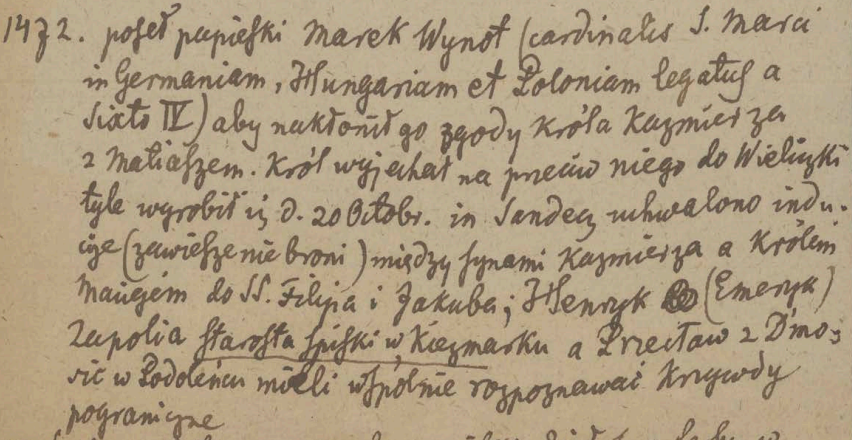 1472. poseł papieski Marek Wynot (cardinalis S. Marci
in Germaniam, Hungariam et Poloniam legatus a
Sixto IV) aby nakłonił go zgody Króla Kazmierza
z Matiaszem. Król wyjechał na przeciw niego do Wieliczki
tyle wyrobił iż d. 20 Octobr. in Sandecz uchwalono indu-
cije (zawieszenie broni) między synami Kazmierza a Królem
Maciejem do SS. Filipa i Jakuba; Henryk (Emeryk)
Zapolia starosta spiski w Kiezmarku a Przecław z Dmo-
sic w Podoleńcu mieli wspólnie rozpoznawać Krzywdy
pograniczne